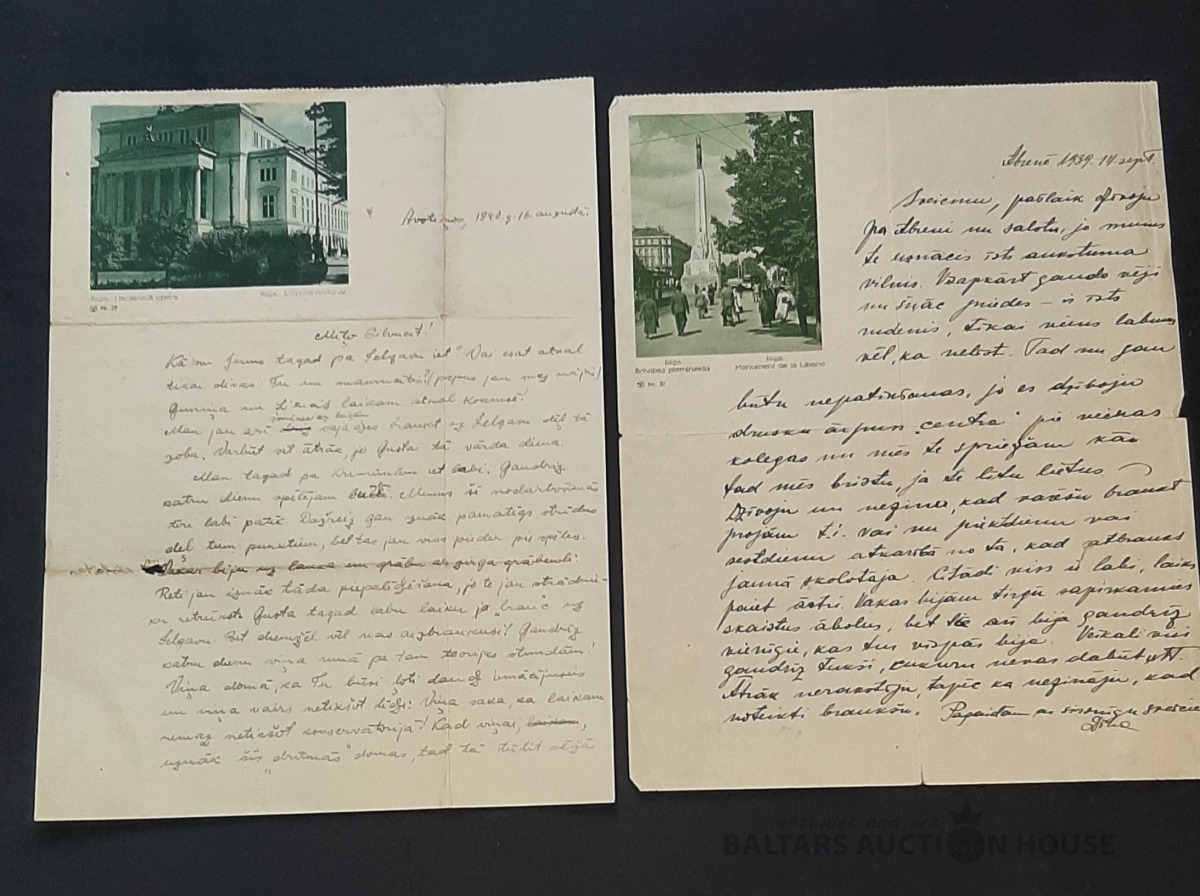 Rīga. Nacionālā opera
Rīga. L'Opéra national
Nr. 29
Avotiņos, 1940. g. 16. augustā.
Mīļo Silvuci!
Kā nu Jums tagad pa Jelgavu iet? Vai esat atkal
tikai divas: Tu un mammucīte?
Gunuņa un laikam atkal Koknesē?
Man jau arī vajadzēs braukt uz Jelgavu dēļ tā
zoba. Varbūt vēl ātrāk, jo Gusta tā vārda diena.
Man tagad pa Krimūnām iet labi. Gandrīz
katru dienu spēlējam Mums šī nodarbošanās
ļoti labi patīk. Dažreiz gan iznāk pamatīgs strīdus
dēļ tiem punktiem, bet tas jau viss pieder pie spēles.
Vakar biju uz lauka un grābu ar zirga grābekli.
Reti jau iznāk tāda piepalīdzēšana, jo te jau strādnie-
ku netrūkst. Gusta tagad labu laiku jau "brauc" uz
Jelgavu. Bet diemžēl vēl nav aizbraukusi! Gandrīz
katru dienu viņa runā pa tam teorijas stundām!
Viņa domā, ka Tu būsi ļoti daudz iemācījusies
un viņa vairs netikšot līdzi. Viņa saka, ka laikam
nemaz netikšot konservatorijā! Kad viņai, laikam,
uznāk šīs "drūmās" domas, tad tā tūlīt
Rīga.
Brīvības piemineklis
Rīga.
Monument de la Liberté
Nr. 37
Abrenē 1939. 14 sept.
Sveicinu, pašlaik dzīvoju
pa Abreni un salstu, jo mums
te uznācis īsts aukstuma
vilnis. Visapkārt gaudo vēji
un šņāc priedes – ir īsts
rudenis, tikai viens labums
vēl, ka nelīst. Tad nu gan
būtu nepatīkamas, jo es dzīvoju
drusku ārpus "centra" pie vienas
kolēgas un mēs te spriežam kā
tad mēs bristu, ja te lītu lietus
Dzīvoju un nezinu, kad varēšu braukt
projām t.i. vai nu piektdien vai
sestdien atkarībā no tā, kad atbrauks
jaunā skolotāja. Citādi viss ir labi, laiks
paiet ātri. Vakar bijām tirgū sapirkāmies
skaistus ābolus, bet tie arī bija gandrīz
vienīgie, kas tur vispār bija. Veikali visi
gandrīz tukši, cukuru nevar dabūt u.t.t.
Ātrāk nerakstīju, tāpēc ka nezināju, kad
noteikti braukšu. Pagaidām ar sirsnīgu sveicienu
antiques and art
BALTARS AUCTION HOUSE